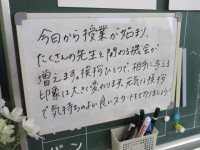 今日から授業が始まり、
たくさんの先生と関わる機会が
増えます。挨拶ひとつで、相手に与える
印象は大きく変わります。元気な挨拶
で気持ちのよいスタートをきりましょう!